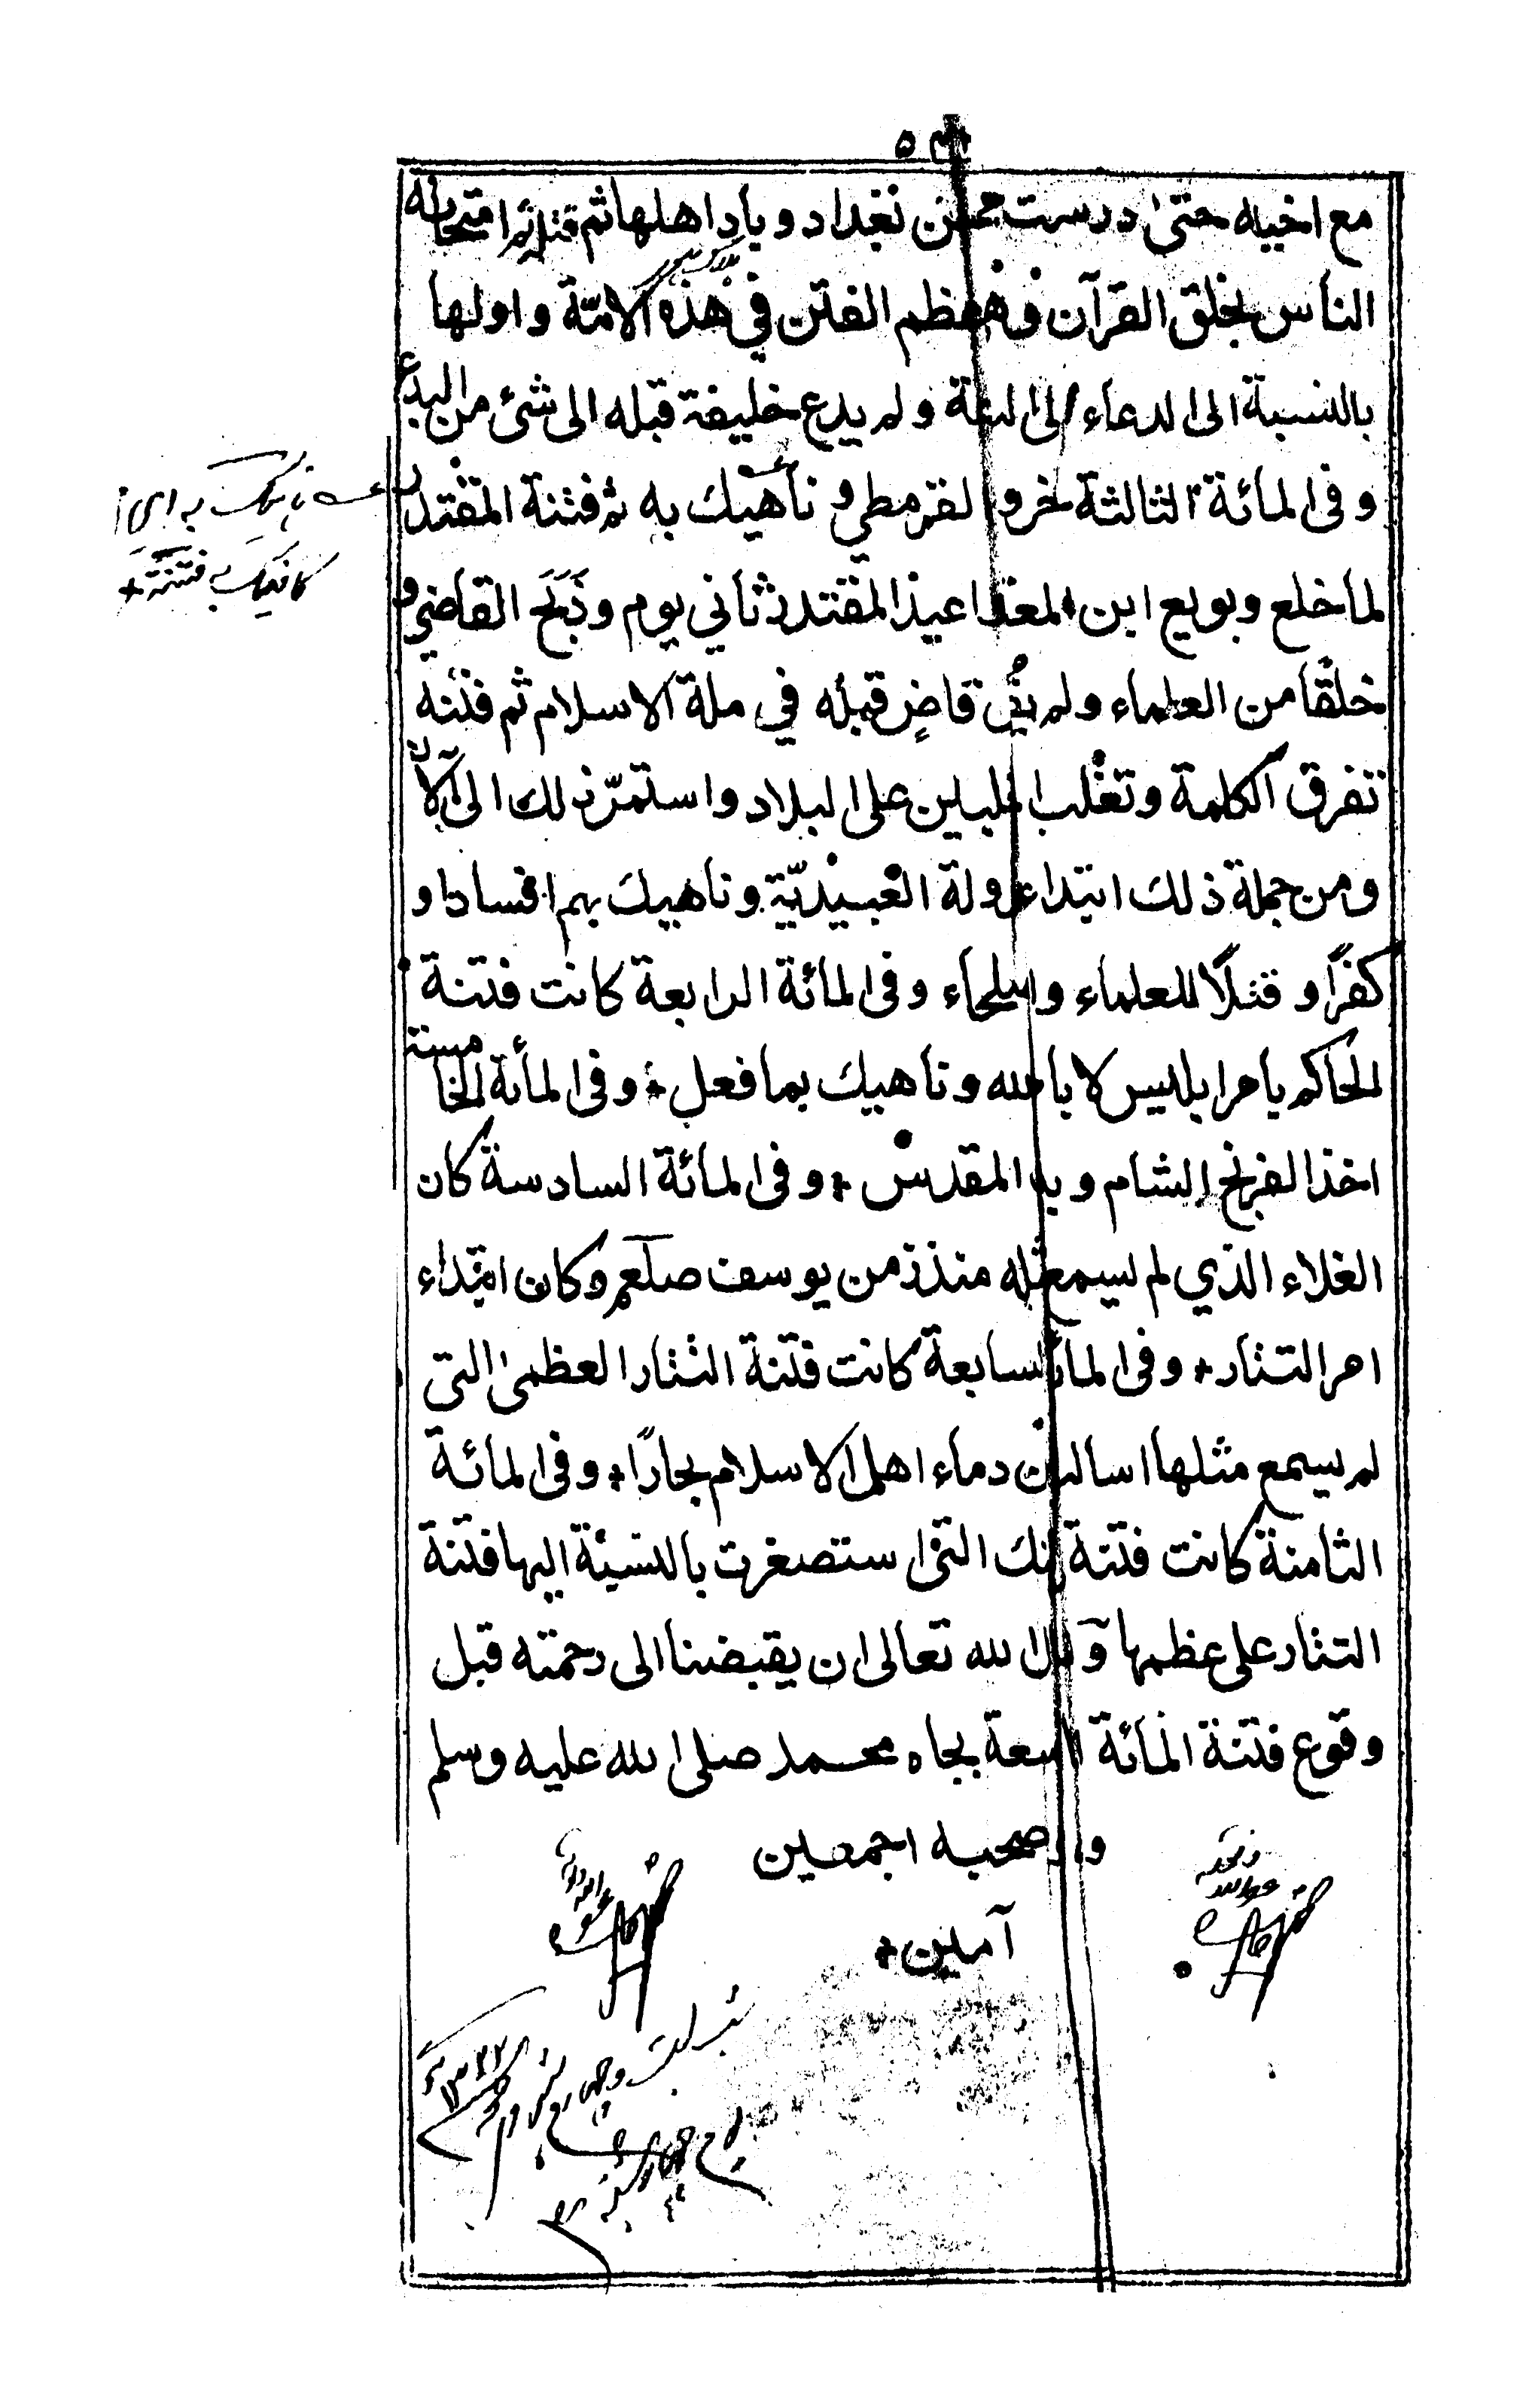 مع اخيه حتى درست محاسن بغداد وباد اهلها ثم قتله ثم امتحانه
الناس بخلق القرآن وهي اعظم الفتن في هذه الامّة واولها
بالنسبة الى الدعاء الى البدعة ولم يدع خليفة قبله الى شئ من البدع
وفي المائة الثالثة خروج القرمطي وناهيك به ثم فتنة المقتدر
لما خلع وبويع ابن المعتز واعيد المقتدر ثاني يوم وذَبَحَ القاضي و
خلقًا من العلماء ولم يقتل قاضٍ قبله في ملة الاسلام ثم فتنه
تفرق الكلمة وتغلب المتغلبين على البلاد واستمرّ ذلك الى الآن
ومن جملة ذلك ابتداء دولة العبيديّة وناهيك بهم افسادا و
كفرًا و قتلًا للعلماء والصلحاء وفي المائة الرابعة كانت فتنة
الحاكم بامر ابليس لا بامر الله وناهيك بما فعل + وفي المأئة الخامسة
اخذ الفرنج الشام وبيت المقدس + وفي المائة السادسة كان
الغلاء الذي لم يسمع بمثله منذ زمن يوسف صلعم وكان ابتداء
امر التتار + وفي المائة السابعة كانت فتنة التتار العظمى التي
لم يسمع مثلها اسالت من دماء اهل الاسلام بحارًا + وفي المائة
الثامنة كانت فتنة تمرلنك التي استصغرت بالنسبة اليها فتنة
التتار على عظمها واسأل الله تعالى ان يقبضنا الى رحمته قبل
وقوع فتنة المائة التاسعة بجاه محمد صلى الله عليه وسلم
وآله وصحبه اجمعين
آمين +
ناهيك به اى
كافيك به فتنة +